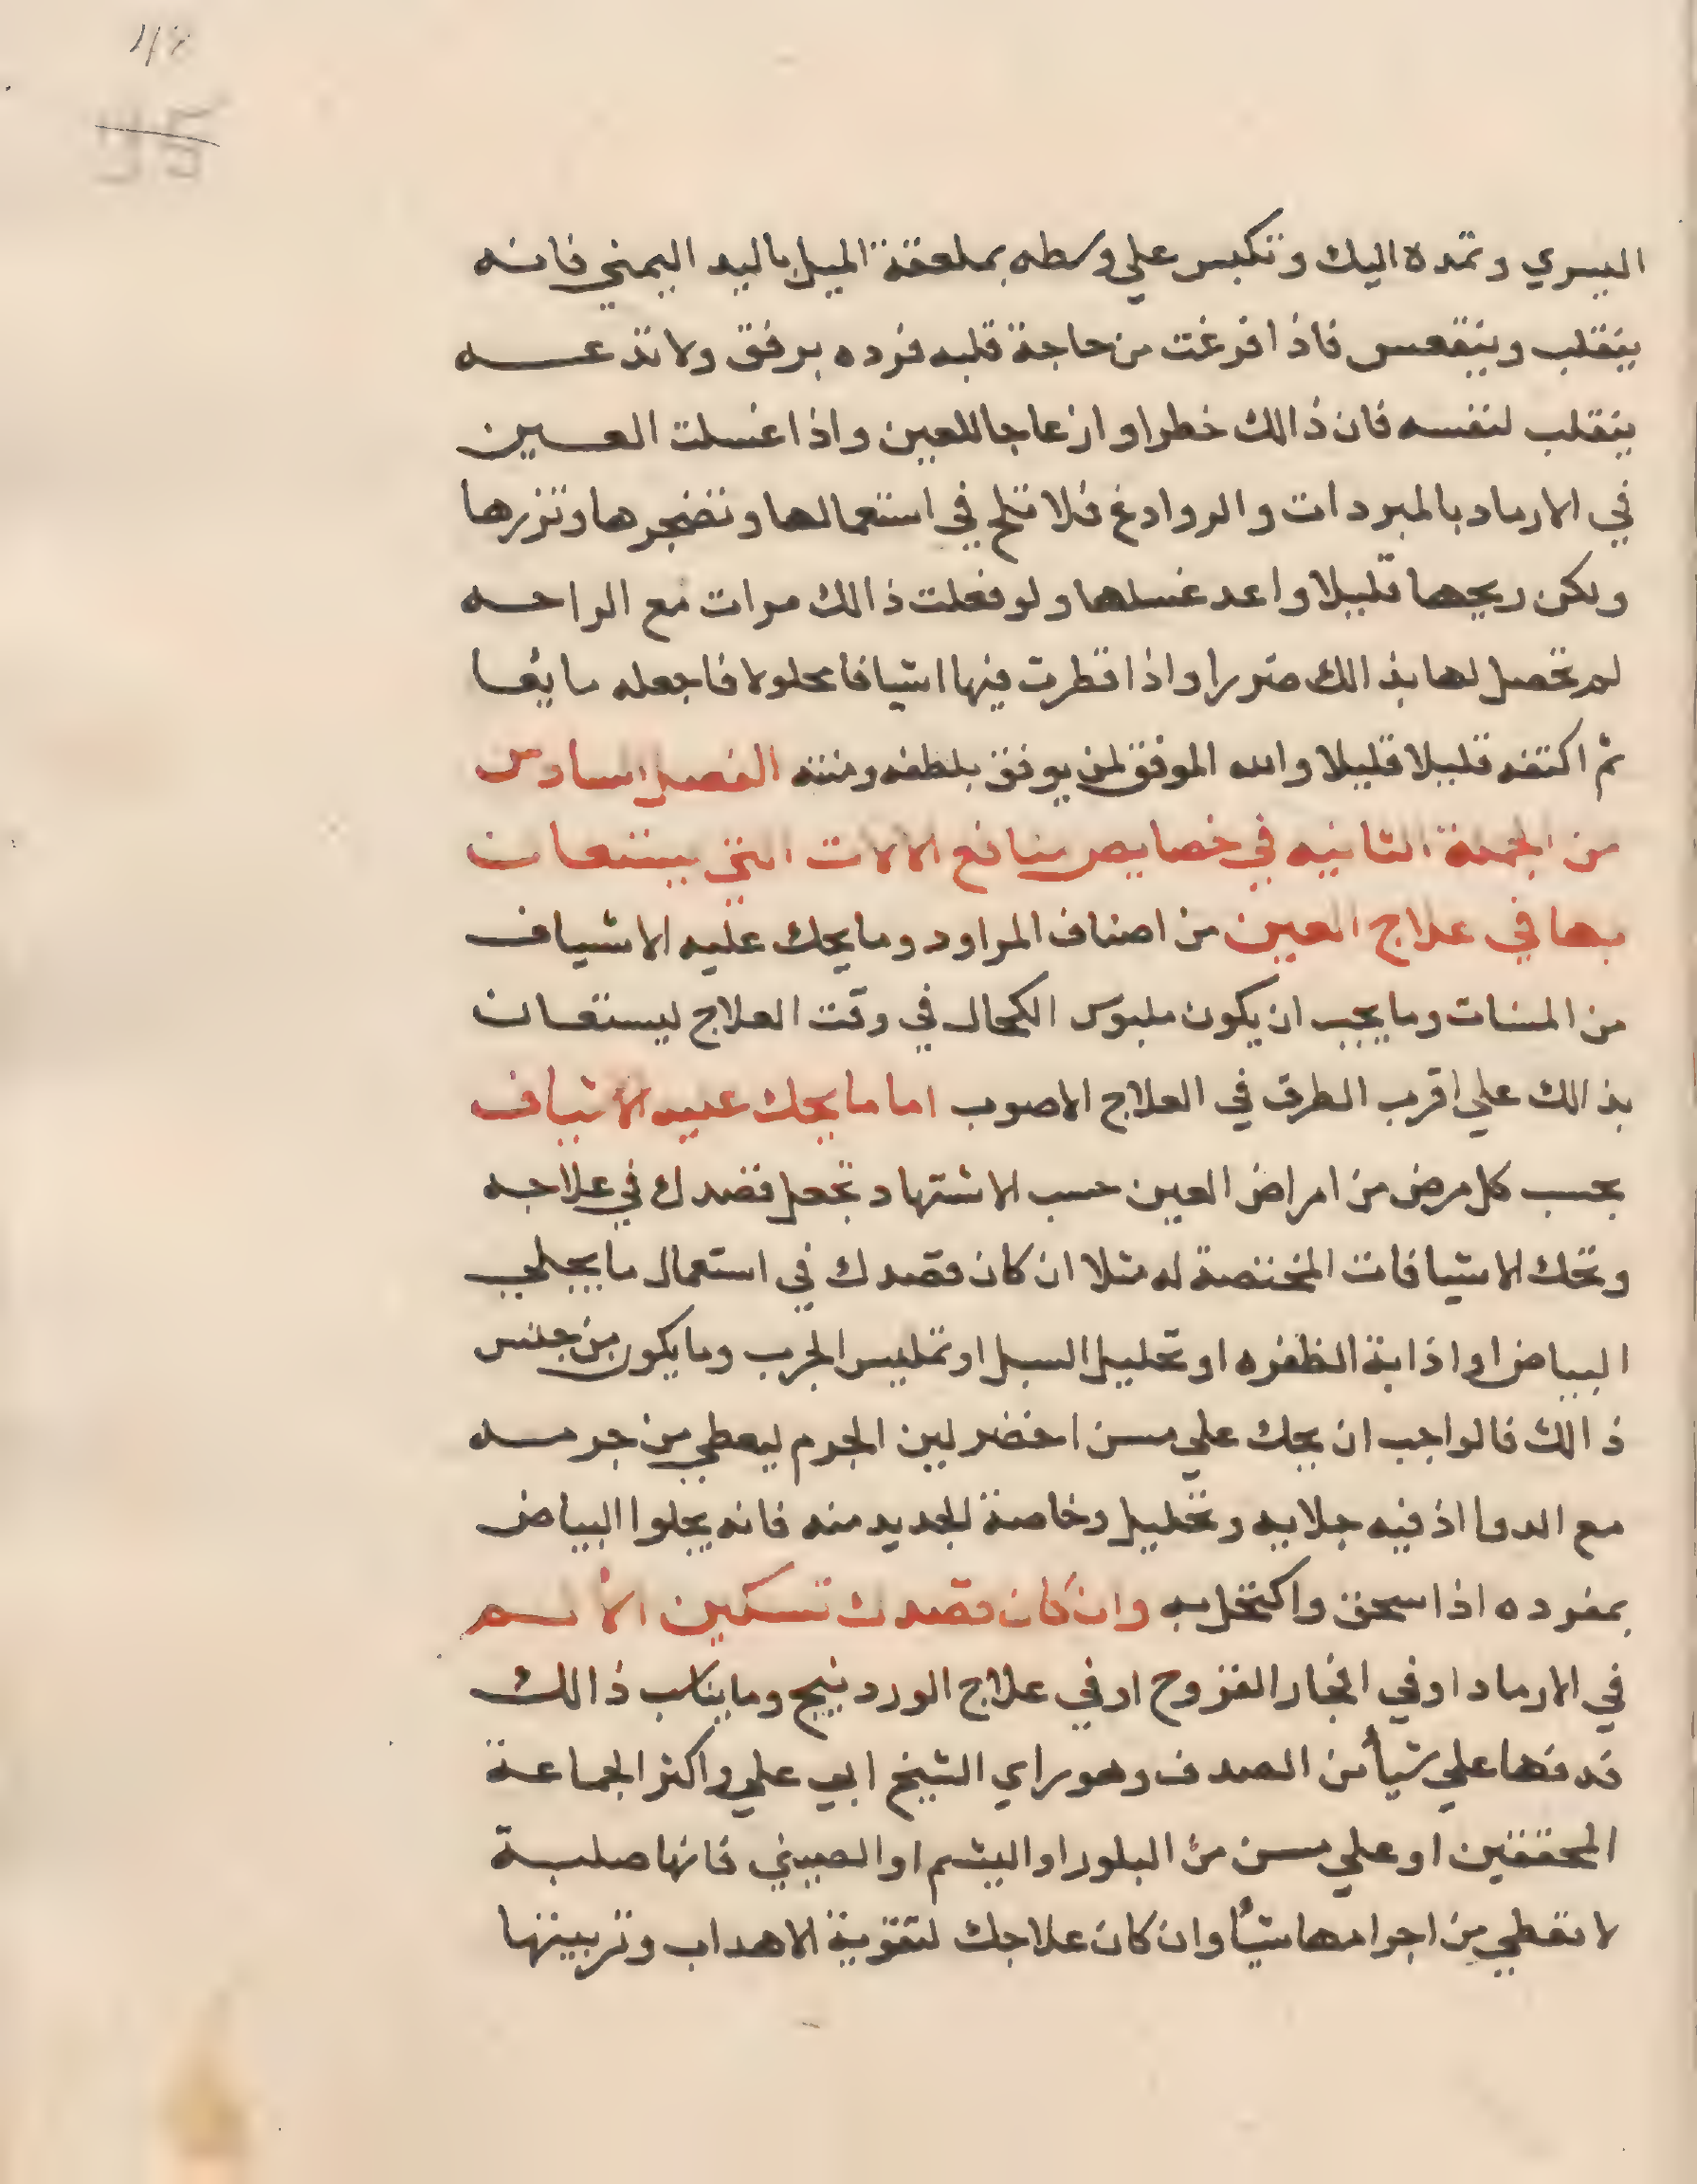 48
95
اليسري وتمده اليك وتكبس علي وسطه بملعقة الميل باليد اليمني فانه
ينقلب وينقعس فاذا فرغت من حاجة قلبه فرده برفق ولا تدعه
ينقلب لنفسه فان ذالك خطرا وازعاجا للعين واذا غسلت العين
في الارماد بالمبردات والروادع فلا تلح في استعمالها وتضجرها وتزرها
ولكن ريحها قليلا واعد غسلها ولو فعلت ذالك مرات مع الراحه
لم تحصل لها بذالك ضررا واذا قطرت فيها اشيافا محلولا فاجعله مايعا
ثم اكتفه قليلا قليلا والله الموفق لمن يوفق بلطفه ومنته الفصل السادس
من الجملة الثانيه في خصايص منافع الالات التي يستعان
بها في علاج العين من اصناف المراود وما يحك عليه الاشياف
من المسنات وما يجب ان يكون ملبوس الكحال في وقت العلاج ليستعان
بذالك علي اقرب الطرق في العلاج الاصوب اما ما يحك عليه الاشياف
بحسب كل مرض من امراض العين حسب الاشتهاد تجعل قصدك في علاجه
وتحك الاشيافات المختصة له مثلا ان كان قصدك في استعمال ما يجلي
البياض او اذابة الظفره او تحليل السبل او تمليس الجرب وما يكون من جنس
ذالك فالواجب ان يحك علي مسن اخضر لين الجرم ليعطي من جرمه
مع الدوا اذ فيه جلايه وتحليل وخاصة الجديد منه فانه يجلوا البياض
بمفرده اذا سحق واكتحل به وان كان قصدك تسكين الألم
في الارماد او في انفجار القروح او في علاج الوردينج وما يناسب ذالك
فدفها علي شيأ من الصدف وهو راي الشيخ ابي علي واكثر الجماعة
المحققين او علي مسن من البلور او اليشم او الصيني فانها صلبة
لا تعطي من اجرامها شيأ وان كان علاجك لتقوية الاهداب وتربيتها